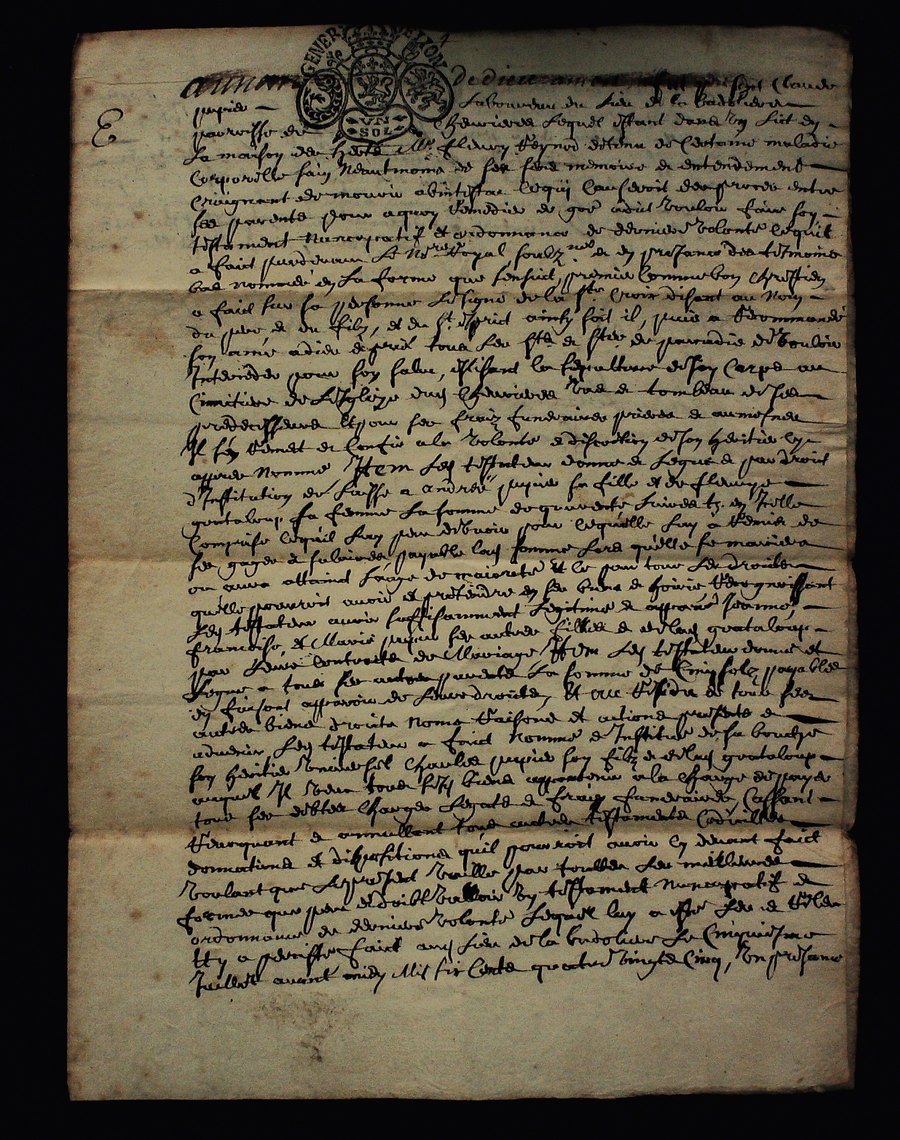 GENER LYON
VN SOL
Au nom de dieu amen fut présent Claude
pupier laboureur du lieu de la badoliere
parroisse de Chevrieres lequel estant dans un lict en
la maison de Mr fleury Reynod detenu de certaine maladie
corporelle sain neantmoins de ses sens memoire et entendement
craignant de mourir abintestat ce qui causeroit des proces entre
ses parents pour a quoy remedier de gré a dit vouloir faire son
testament nuncupatif et ordonnance de derniere volonté lequel
a faict pardevant le Nore Royal soubzne et en presance des tesmoins
bas nommés en la forme que sensuit, premier comme bon chrestien
a faict sur sa personne le signe de la ste Croix disant au nom
du pere et du filz, et du st esprit ainsy soit il, puis a recommandé
son ame a dieu et prié tous les sts et stes de paradis de vouloir
interceder pour son salut, eslisant la sepulture de son corps au
cimitiere de lesglize dud Chevrieres vas et tombeau de ses
predecesseurs et pour ses fraiz funeraires prieres et aumosnes
Il sen remet et confie a la volonté et discretion de son heritier cy
apprés nommé Item led testateur donne et legue et par droit
d'institution delaisse a andrée pupier sa fille et de fleurye
grataloup sa femme la somme de quarente livres tz. en icelle
comprise ce quil luy peut debvoir pour lesquelle luy a
ses gages et salaires payable lad somme lors quelle se mariera
ou aura attaint laage de majorité et ce pour tous les droits
quelle pourroit avoir et pretendre en ses biens et hoirie recognoissant
led testateur avoir suffisamment legitimé et apporté Jeanne,
francoise, et Marie pupier ses autres filles et de lad grataloup
par leurs contraits de mariage Item led testateur donne et
legue a tous ses autres parents la somme de cinq solz payables
en faisant apparoir de leurs droits, et au residu de tous ses
autres biens droits noms raisons et actions presents et
advenir led testateur a faict nommé et institué de sa bouche
son heritier universel Charles pupier son filz et de lad grataloup
auquel il veut tous sesd biens appartenir a la charge de payer
tous ses debtes charges legats et fraiz funeraires, Cassant
revocquant et annullant tous autres testaments codicilles
donnations et dispositions quil pourroit avoir cy devant faict
voulant que le present vaille par touttes les meilleures
formes que peut et doibt valloir un testament nuncupatif et
ordonnance de derniere volonté lequel luy a esté leu et releu
et y a persisté faict aud lieu de la badoliere le cinquiesme
Juillet avant midy Mil six cents quatre vingts cinq, en presance